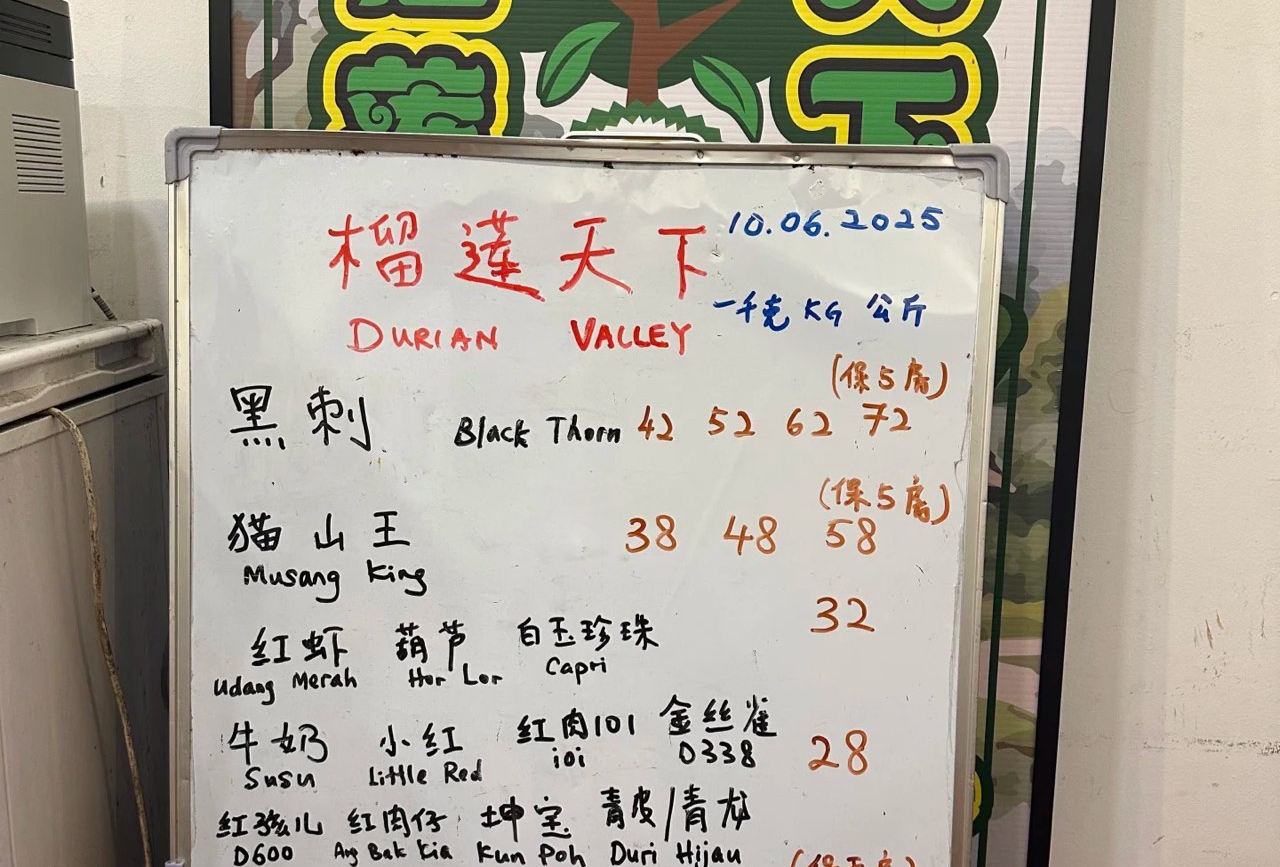 榴莲天下 10.06.2025
DURIAN VALLEY 一千克 KG 公斤
(保5房)
黑刺 Black Thorn 42 52 62 72
(保5房)
猫山王 38 48 58
Musang King
32
红虾 葫芦 白玉珍珠
Udang Merah Hor Lor Capri
牛奶 小红 红肉101 金丝雀
Susu Little Red ioi 0338 28
红孩儿 红肉仔 坤宝 青皮/青龙
D600 Ang Bak Kia Kun Poh Duri Hijau